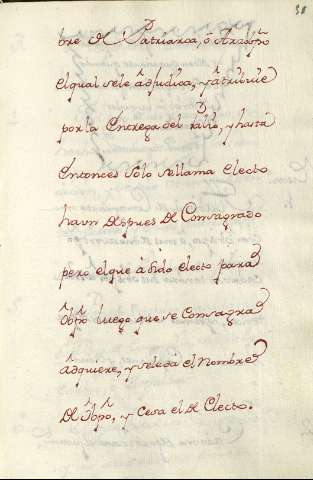 38
bre de Patriarca, ó Arzobpo
el qual se le âdjudica, y âtribuie
por la Entrega del Pallio, y hasta
entonces sólo se llama Electo
haun despues de Consagrado
pero el que â sido electo para
Obpo luego que se Consagra
âdquiere, y se le dá el Nombre
de Obpo, y Cesa el de Electo.